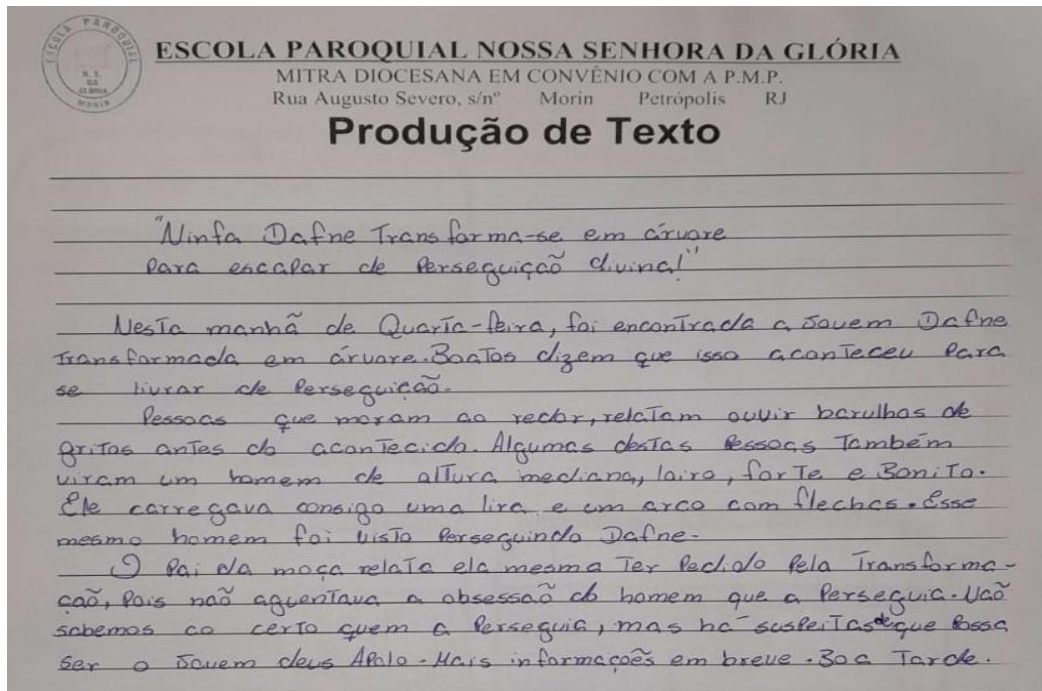 ESCOLA PAROQUIAL
N. S.
DA
GLÓRIA
MORIN
ESCOLA PAROQUIAL NOSSA SENHORA DA GLÓRIA
MITRA DIOCESANA EM CONVÊNIO COM A P.M.P.
Rua Augusto Severo, s/nº Morin Petrópolis RJ
Produção de Texto
"Ninfa Dafne Transforma-se em árvore
Para escapar de Perseguição divina!"
Nesta manhã de Quarta-feira, foi encontrada a Jovem Dafne
Transformada em árvore. Boatos dizem que isso aconteceu Para
se livrar de Perseguição.
Pessoas que moram ao redor, relatam ouvir barulhos de
gritos antes do acontecido. Algumas destas Pessoas Também
viram um homem de altura mediana, loiro, forte e Bonito.
Ele carregava consigo uma lira e um arco com flechas. Esse
mesmo homem foi visto Perseguindo Dafne.
O Pai da moça relata ela mesma Ter Pedido Pela Transforma-
ção, Pois não aguentava a obsessão do homem que a Perseguia. Não
sabemos ao certo quem a Perseguia, mas há suspeitas de que Possa
ser o Jovem deus APolo. Mais informações em breve. Boa Tarde.